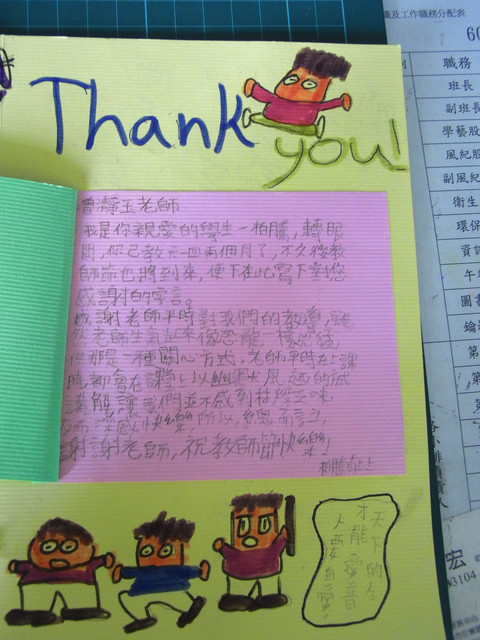 Thank
you!
曾瀞玉老師
我是你親愛的學生－柏勝,轉眼
間,你已教天一四兩個月了,不久後教
師節也將到來,便下在此寫下對您
感謝的字言。
感謝老師平時對我們的教導,雖
然老師生氣起來像恐龍一樣兇猛,
但那是一種關心方式,老師平時在上課
時,都會在課堂上以幽默、風趣的
講解,讓我們並不感到枯燥乏味,
反而深感快樂,所以,總而言之,
謝謝老師,祝教師節快樂!
柏勝敬上
天下的人
才能愛着
人要自愛
及工作職務分配表
職務
班長
副班長
學藝股
風紀股
副風紀
衛生
環保
資訊
午
圖書
鑰
第
第
第
宏
3104